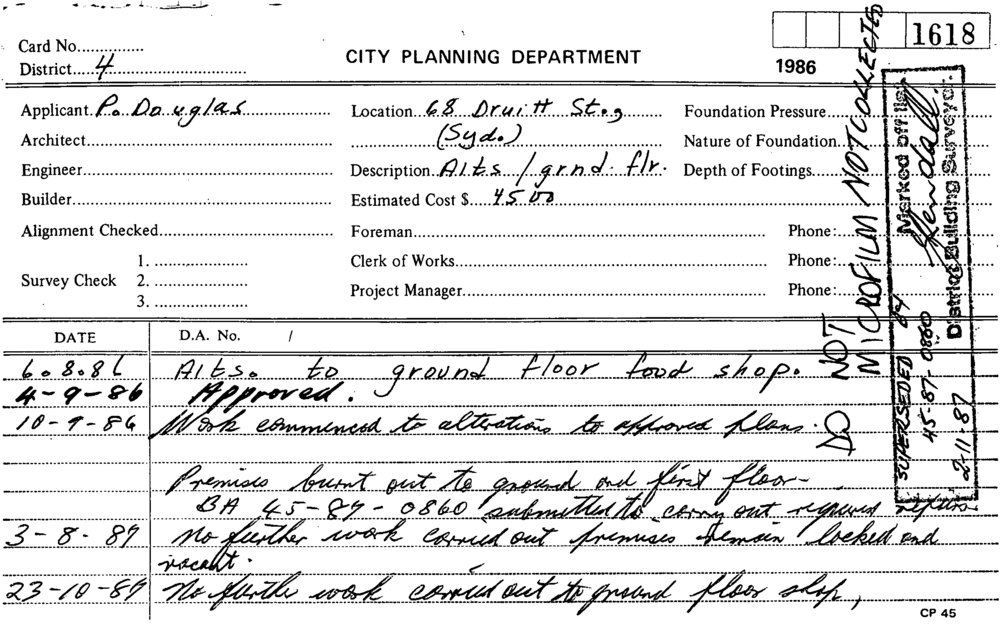 Card No.
District 4
CITY PLANNING DEPARTMENT
1618
1986
Applicant P. Douglas
Location 68 Druitt St.,
(Syd.)
Foundation Pressure
Architect
Nature of Foundation
Engineer
Description Alts / grnd. flr.
Depth of Footings
Builder
Estimated Cost $ 4500
Alignment Checked
Foreman
Phone:
Survey Check
1.
2.
3.
Clerk of Works
Phone:
Project Manager
Phone:
DO NOT
MICROFILM NOT COLLECTED
SUPERSEDED by
45-87-0860
2-11-87
Marked off file
District Building Surveyor.
DATE
D.A. No. /
6.8.86 Alts. to ground floor food shop.
4-9-86 Approved.
10-9-86 Work commenced to alterations to approved plans.
Premises burnt out to ground and first floor-
BA 45-87-0860 submitted to carry out required repairs.
3-8-87 No further work carried out premises remain locked and
vacant.
23-10-87 No further work carried out to ground floor shop,
CP 45